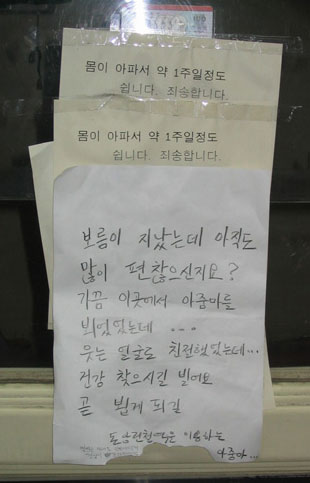 몸이 아파서 약 1주일정도
쉽니다. 죄송합니다.
몸이 아파서 약 1주일정도
쉽니다. 죄송합니다.
보름이 지났는데 아직도
많이 편찮으신지요?
가끔 이곳에서 아줌마들
뵈었었는데 ...
웃는 얼굴로 친절했었는데...
건강 찾으시길 빌어요
곧 뵙게 되길
이용하는
아줌마...